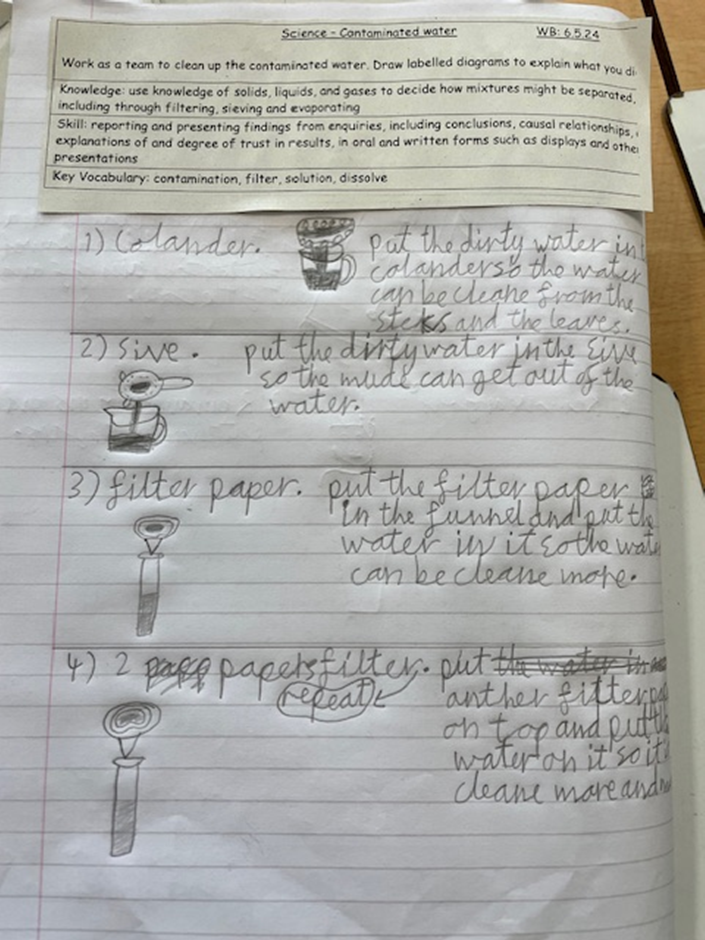 Science - Contaminated water WB: 6.5.24
Work as a team to clean up the contaminated water. Draw labelled diagrams to explain what you di
Knowledge: use knowledge of solids, liquids, and gases to decide how mixtures might be separated,
including through filtering, sieving and evaporating
Skill: reporting and presenting findings from enquiries, including conclusions, causal relationships,
explanations of and degree of trust in results, in oral and written forms such as displays and othe
presentations
Key Vocabulary: contamination, filter, solution, dissolve
1) Colander. put the dirty water in
colander so the water
can be cleane from the
steks and the leaves.
2) Sive. put the dirty water in the sive
so the mude can get out of the
water.
3) filter paper. put the filter paper
in the funnel and put the
water in it so the wate
can be cleane more.
4) 2 papers filter. put the water in
repeat anther filter pa
on top and put th
water on it so it
cleane more and